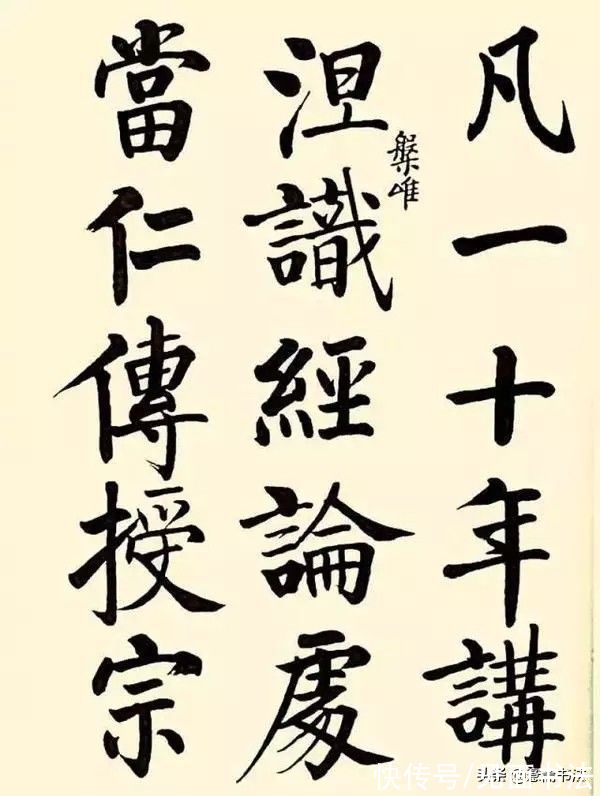 凡一十年講
涅槃唯識經論處
當仁傳授宗
头条 书法
快传号/ 书法